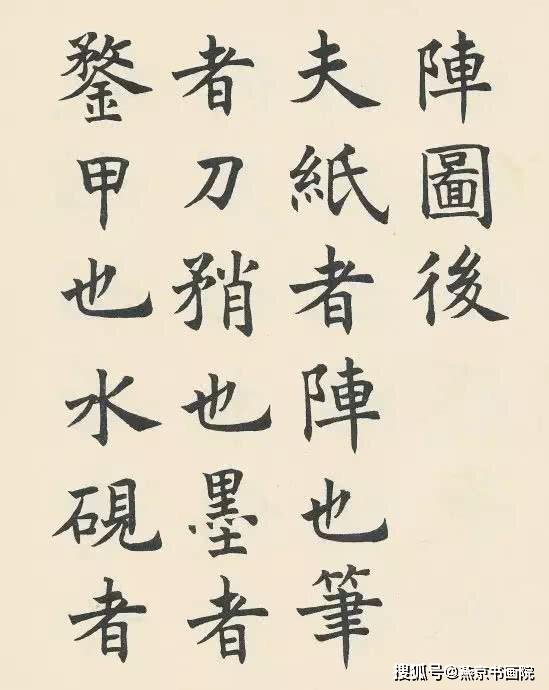 陣圖後
夫紙者陣也筆
者刀矟也墨者
鍪甲也水硯者
搜狐号@燕京书画院